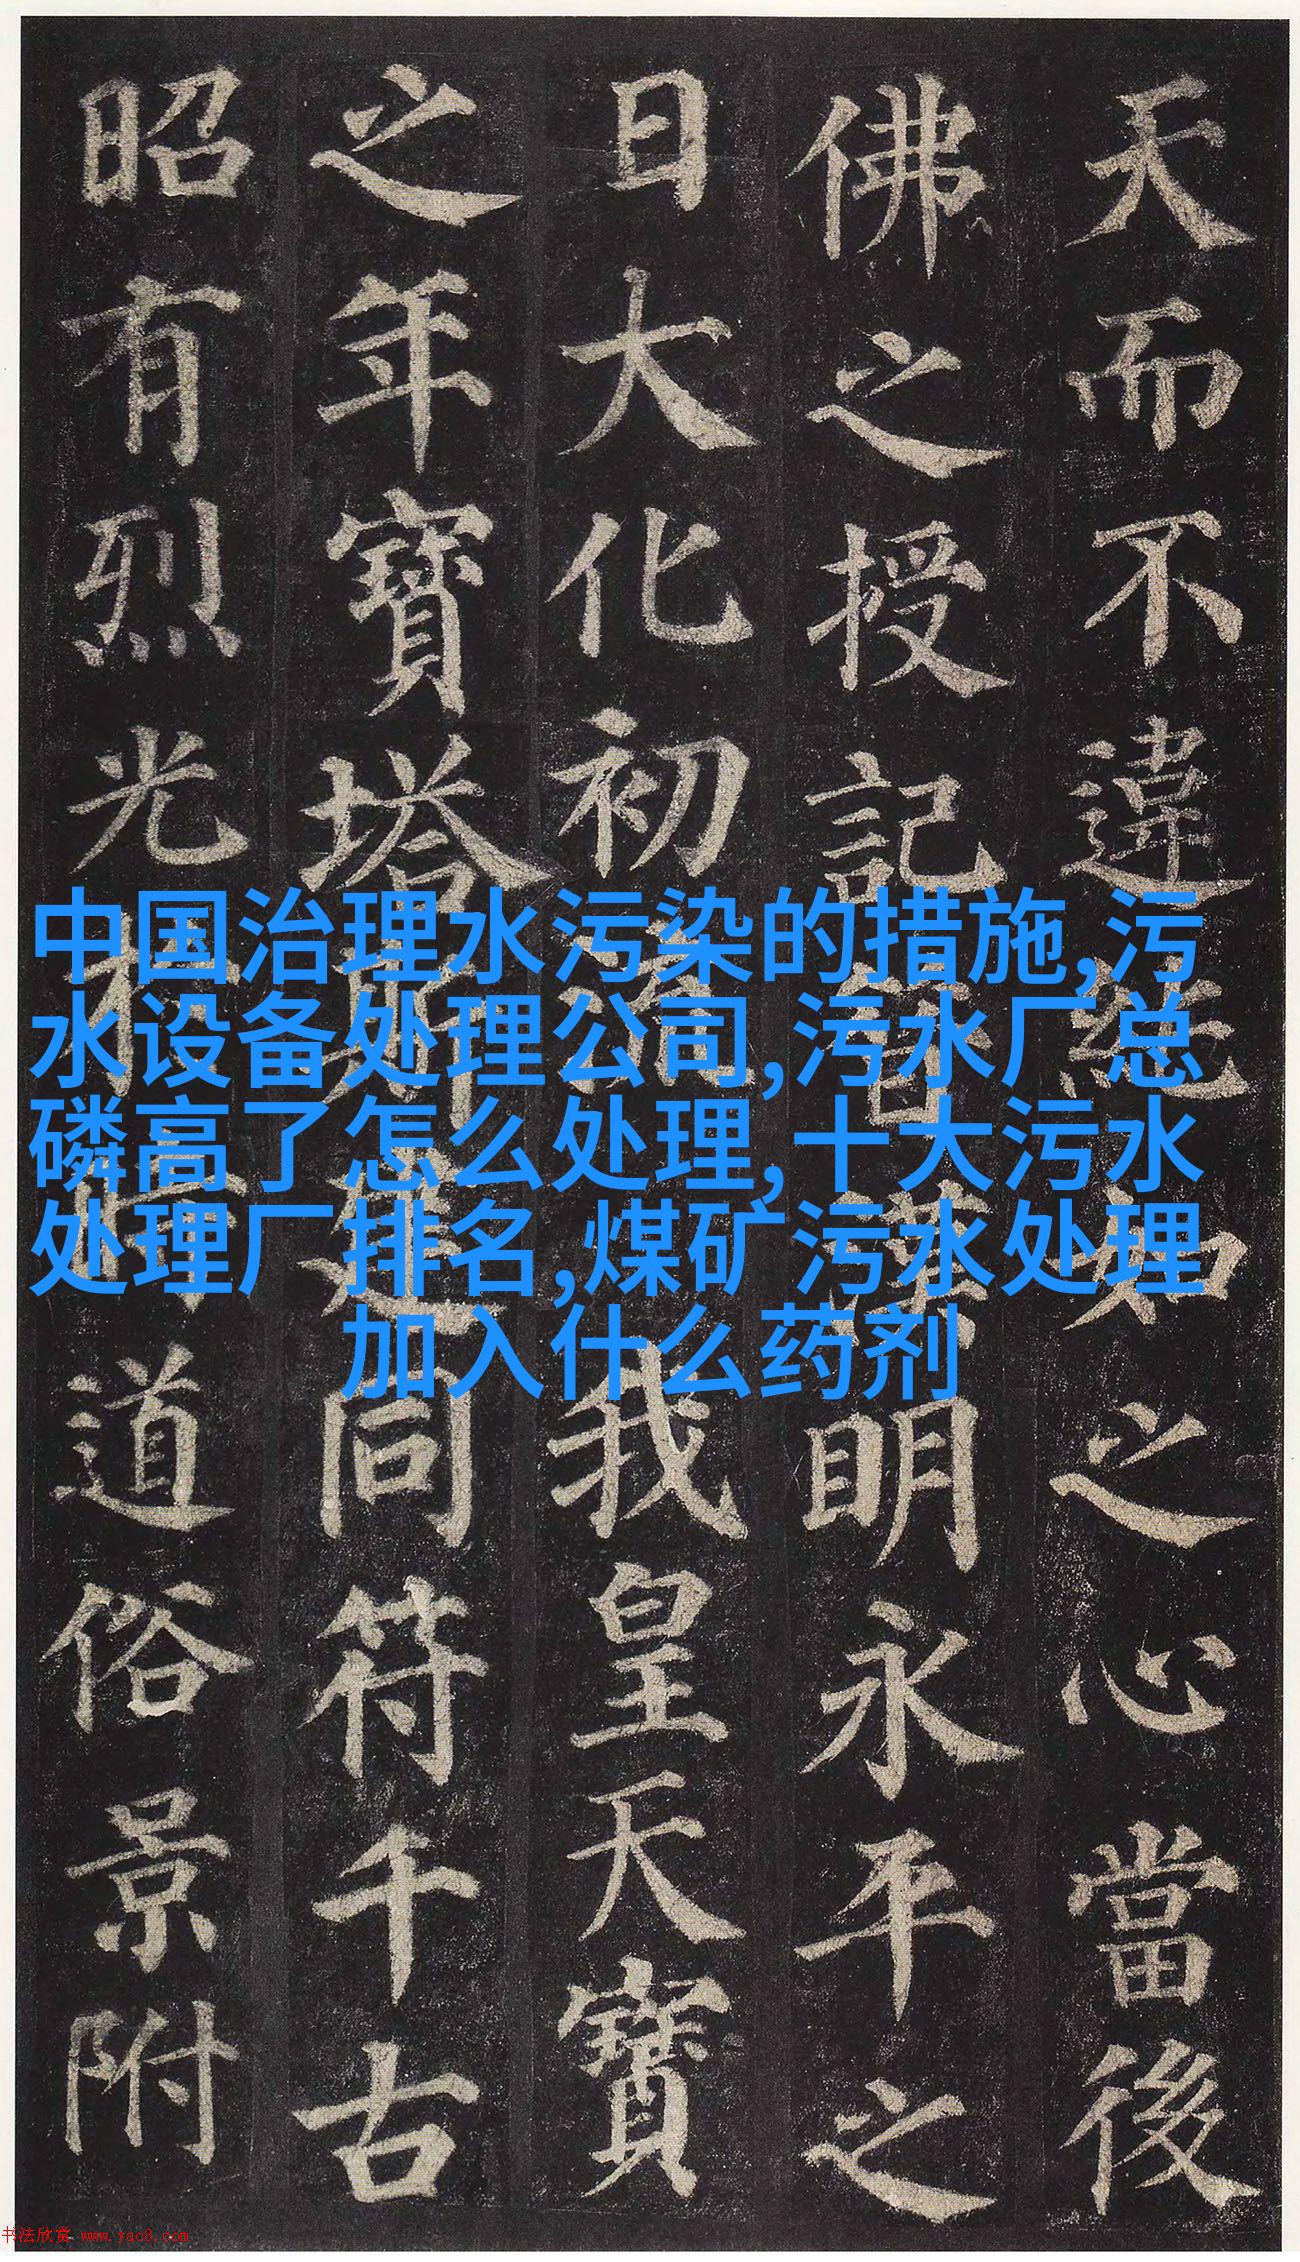 天而不違如之心當後
佛之授記昔漢明永平之
日大化初流我皇天寶
之年寶塔斯建同符千古
昭有烈光於時道俗景附
中国治理水污染的措施,污
水设备处理公司,污水厂总
磷高了怎么处理,十大污水
处理厂排名,煤矿污水处理
加入什么药剂
书法欣赏 www.yac8.com